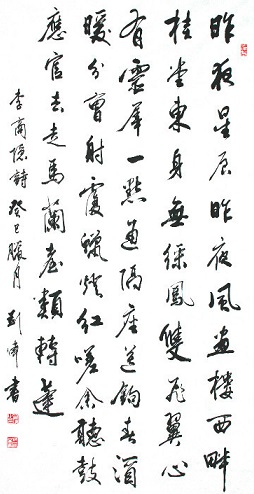 昨夜星辰昨夜風畫樓西畔
桂堂東身無綵鳳雙飛翼心
有靈犀一點通隔座送鉤春酒
暖分曹射覆蠟燈紅嗟余聽鼓
應官去走馬蘭臺類轉蓬
李商隱詩癸巳臘月劉偉書